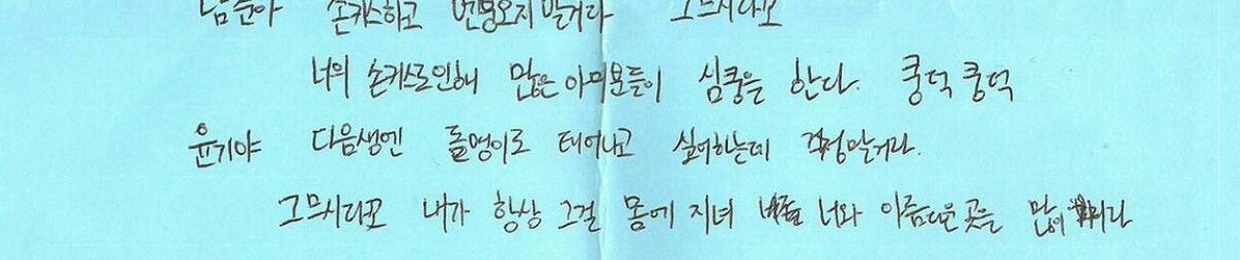 남준아 손키스하고 변명오지말거라 그므시라꼬
너의 손키스로인해 많은 아미분들이 심쿵을 한다. 쿵덕 쿵덕
윤기야 다음생엔 돌멩이로 태어나고 싶어하는데 걱정말거라.
그므시라꼬 내가 항상 그걸 몸에 지녀 너와 아름다운곳을 많이